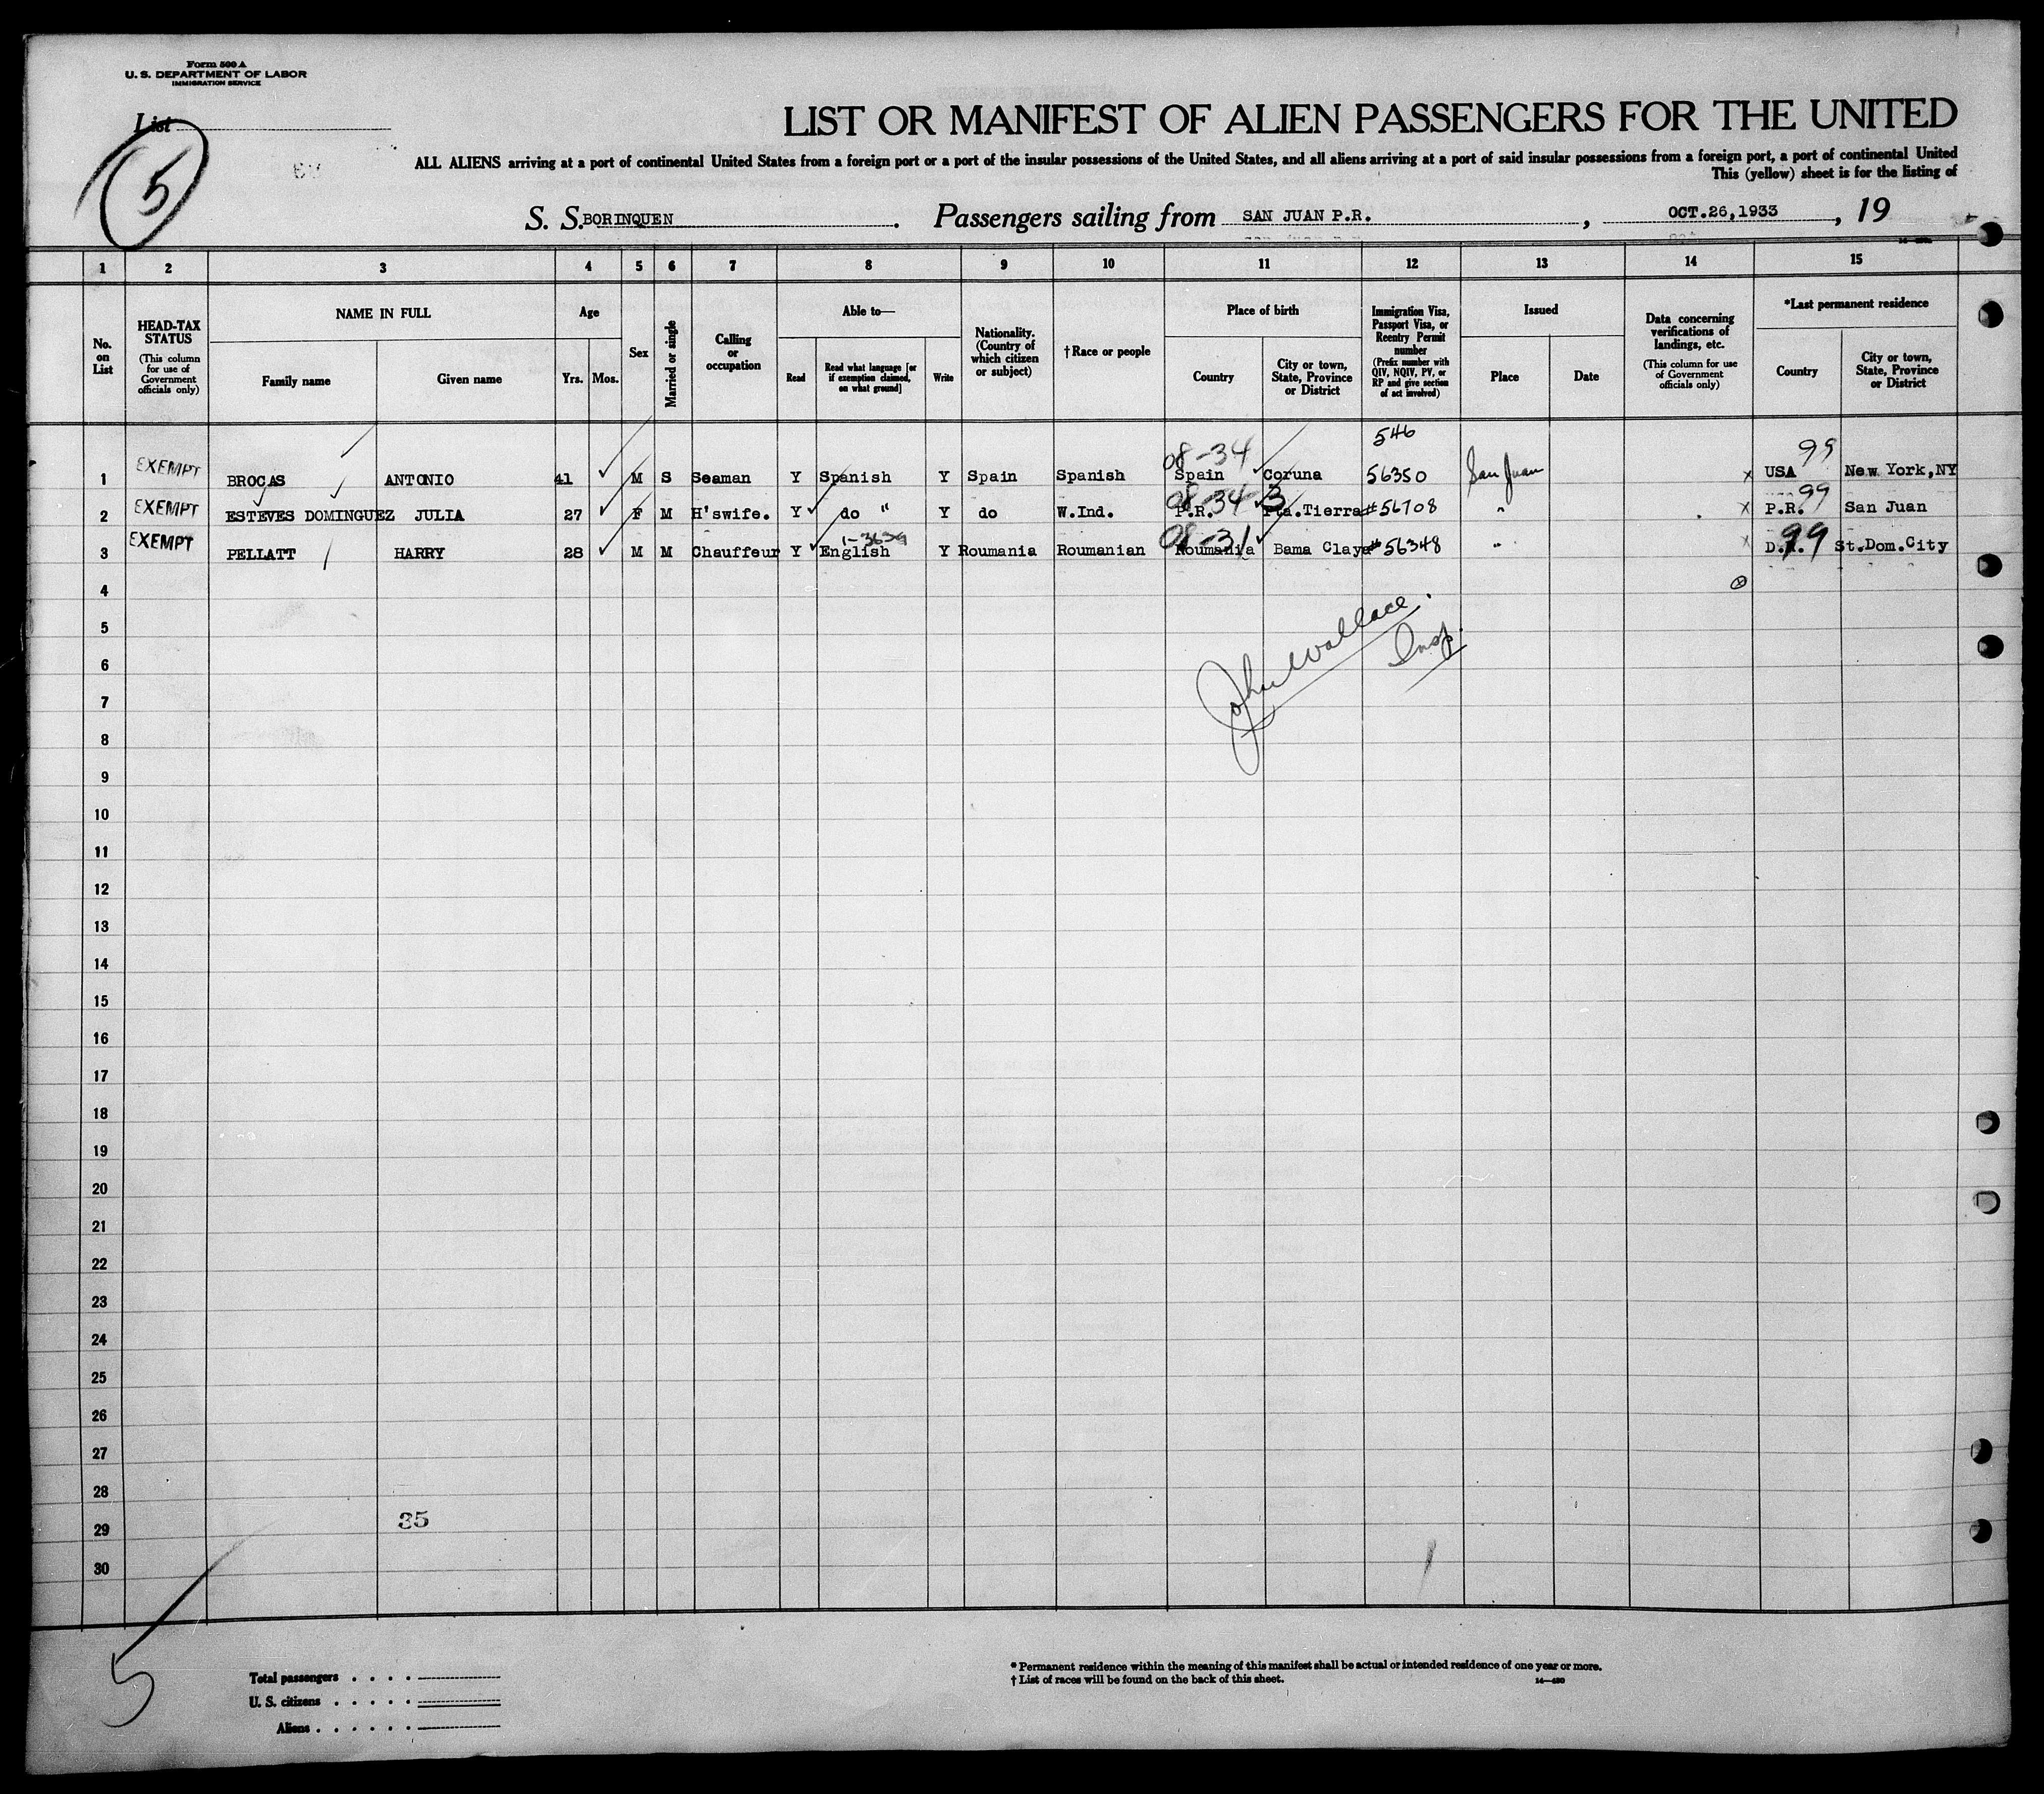 Form 500 A
U. S. DEPARTMENT OF LABOR
IMMIGRATION SERVICE
List
5
LIST OR MANIFEST OF ALIEN PASSENGERS FOR THE UNITED
ALL ALIENS arriving at a port of continental United States from a foreign port or a port of the insular possessions of the United States, and all aliens arriving at a port of said insular possessions from a foreign port, a port of continental United
This (yellow) sheet is for the listing of
S. S. BORINQUEN. Passengers sailing from SAN JUAN P.R., OCT.26,1933, 19
1 2 3 4 5 6 7 8 9 10 11 12 13 14 15
No. on List
HEAD-TAX STATUS (This column for use of Government officials only)
NAME IN FULL
Family name Given name
Age
Yrs. Mos.
Sex
Married or single
Calling or occupation
Able to—
Read
Read what language [or if exemption claimed, on what ground]
Write
Nationality. (Country of which citizen or subject)
†Race or people
Place of birth
Country
City or town, State, Province or District
Immigration Visa, Passport Visa, or Reentry Permit number (Prefix number with QIV, NQIV, PV, or RP and give section of act involved)
Issued
Place Date
Data concerning verifications of landings, etc. (This column for use of Government officials only)
*Last permanent residence
Country
City or town, State, Province or District
546
08-34 99
1 EXEMPT BROCAS ANTONIO 41 M S Seaman Y Spanish Y Spain Spanish Spain Coruna 56350 San Juan x USA New York,NY
08-34 3 99
2 EXEMPT ESTEVES DOMINGUEZ JULIA 27 F M H'swife. Y do " Y do W.Ind. P.R. Pta.Tierra #56708 " x P.R. San Juan
08-31 99
3 EXEMPT PELLATT HARRY 28 M M Chauffeur Y English Y Roumania Roumanian Roumania Bama Claya #56348 " x D.R. St.Dom.City
4
5
6
7
8
John Wallace.
Insp.
9
10
11
12
13
14
15
16
17
18
19
20
21
22
23
24
25
26
27
28
29
35
30
5
Total passengers . . . .
U. S. citizens . . . . .
Aliens . . . . . .
* Permanent residence within the meaning of this manifest shall be actual or intended residence of one year or more.
† List of races will be found on the back of this sheet.
14—430